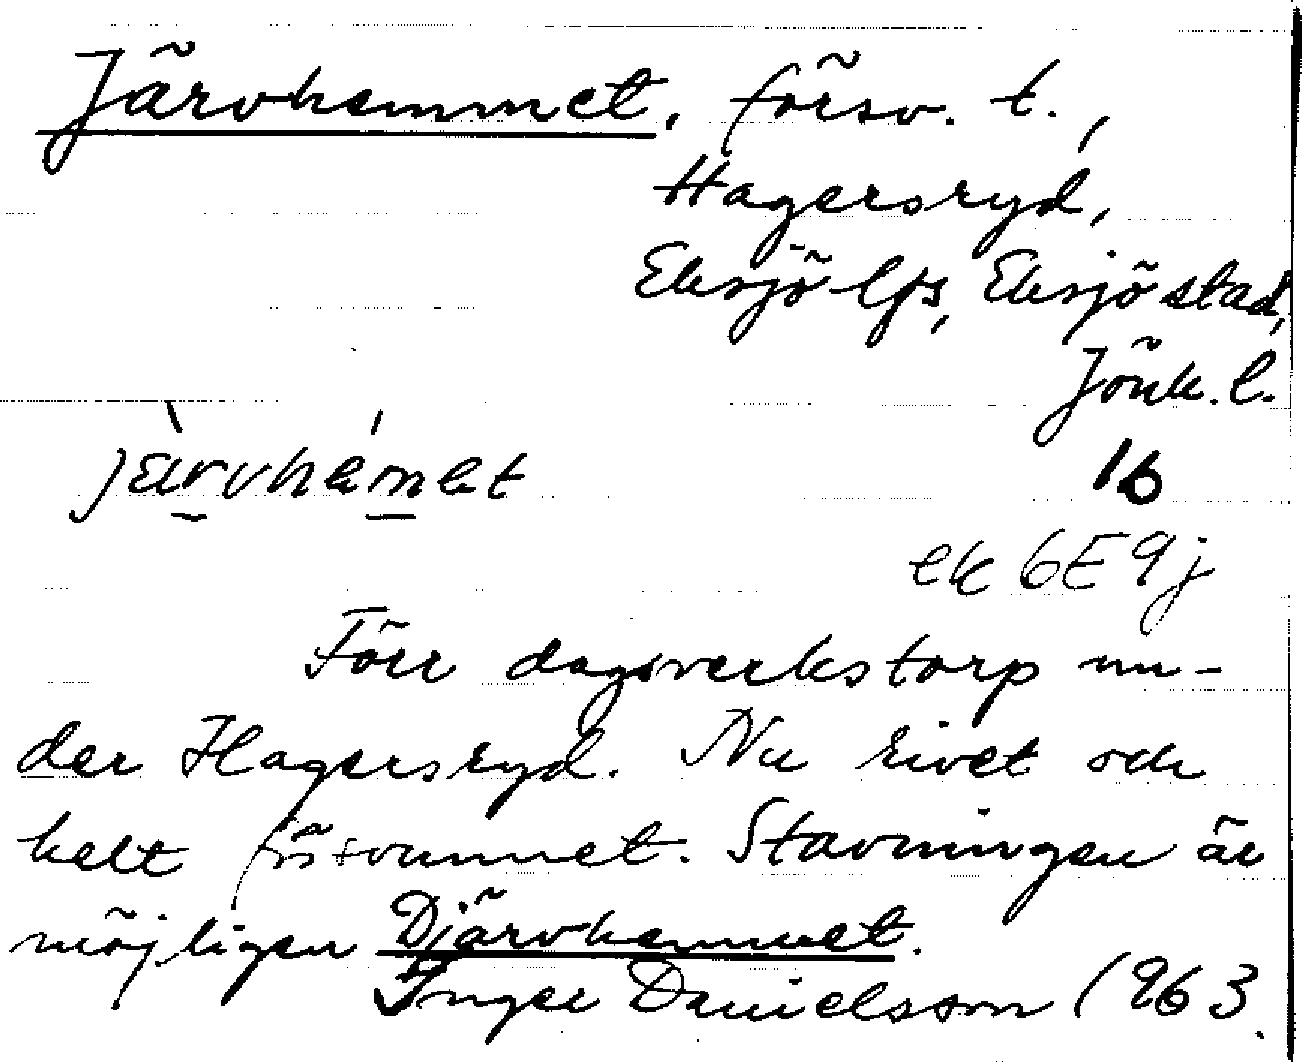 Järvhemmet, försv. t.,
Hagersryd,
Eksjö lfs, Eksjö stad,
Jönk. l.
jàrvhémet
16
ek 6E9j
Förr dagsverkstorp un-
der Hagersryd. Nu rivet och
helt försvunnet. Stavningen är
möjligen Djärvhemmet.
Inger Danielsson 1963.